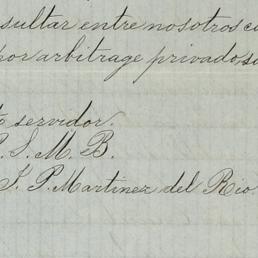 sultar entre nosotros
por arbitrage privado
servidor.
S. M. B.
J. P. Martinez del Rio